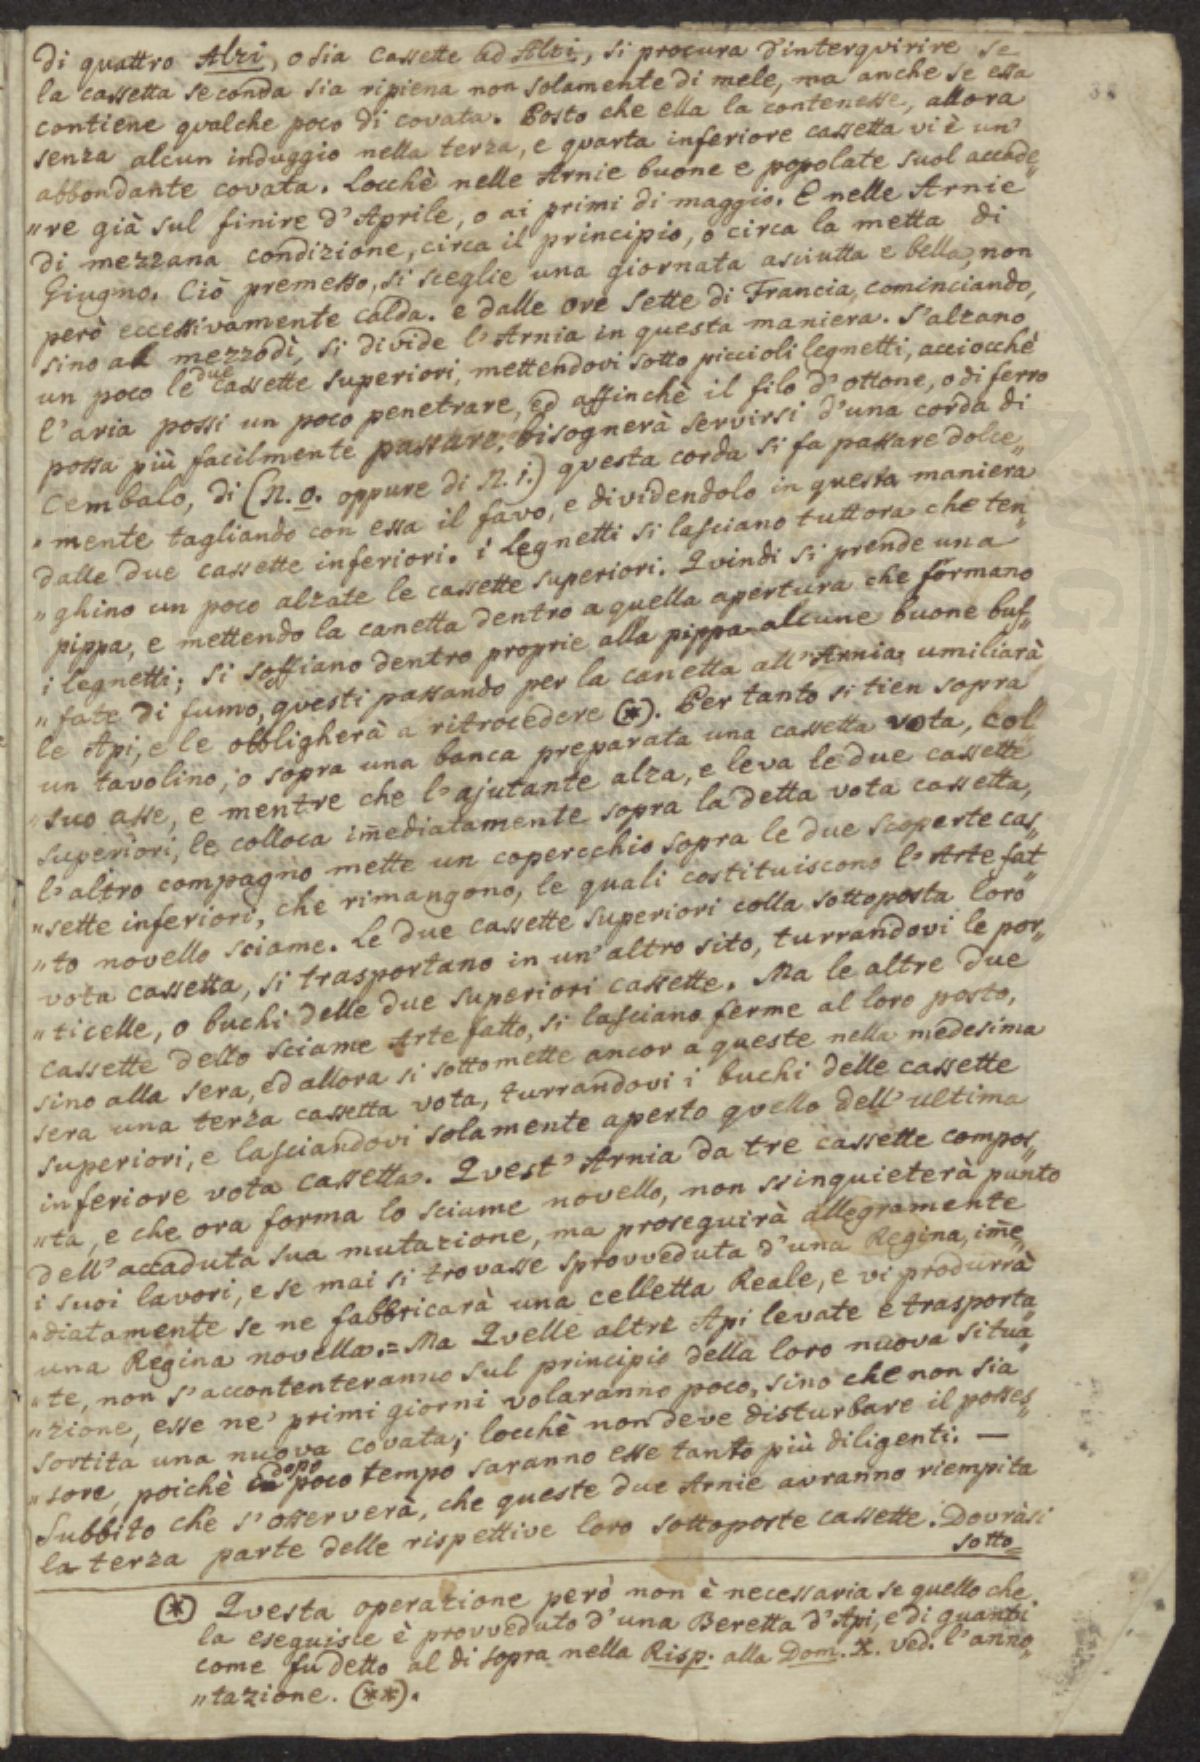 di quattro Alzi, o sia Cassette ad Alzi, si procura d'interqvirire se
la cassetta seconda sia ripiena non solamente di mele, ma anche se essa
contiene qvalche poco di covata. Posto che ella la contenesse, allora
senza alcun induggio nella terza, e qvarta inferiore cassetta vi è un'
abbondante covata. Locchè nelle Arnie buone e popolate suol accade„
„re già sul finire d'Aprile, o ai primi di maggio. E nelle Arnie
di mezzana condizione, circa il principio, o circa la metta di
Giugno. Ciò premesso, si sceglie una giornata asciutta e bella, non
però eccessivamente calda. e dalle ore sette di Francia, cominciando,
sino al mezzodì, si divide l'Arnia in questa maniera. S'alzano
un poco le due cassette superiori, mettendovi sotto piccioli legnetti, acciocchè
l'aria possi un poco penetrare, ed affinchè il filo d'ottone, o di ferro
possa più facilmente passare, bisognerà servirsi d'una corda di
Cembalo, di (N. o. oppure di N. i.) questa corda si fa passare dolce„
„mente tagliando con essa il favo, e dividendolo in questa maniera
dalle due cassette inferiori. i legnetti si lasciano tuttora che ten„
„ghino un poco alzate le cassette superiori. Qvindi si prende una
pippa, e mettendo la canetta dentro a quella apertura che formano
i legnetti; si soffiano dentro proprie alla pippa alcune buone buf„
„fate di fumo, qvesti passando per la canetta all'Arnia, umiliarà
le Api, e le obbligherà a ritrocedere (*). Per tanto si tien sopra
un tavolino, o sopra una banca preparata una cassetta vota, col
suo asse, e mentre che l'ajutante alza, e leva le due cassette
superiori, le colloca im̃ediatamente sopra la detta vota cassetta,
l'altro compagno mette un coperchio sopra le due scoperte cas„
„sette inferiori, che rimangono, le quali costituiscono l'Arte fat„
„to novello sciame. Le due cassette superiori colla sottoposta loro
vota cassetta, si trasportano in un'altro sito, turrandovi le por„
„ticelle, o buchi delle due superiori cassette. Ma le altre due
cassette dello sciame Arte fatto, si lasciano ferme al loro posto,
sino alla sera, ed allora si sottomette ancor a queste nella medesima
sera una terza cassetta vota, turrandovi i buchi delle cassette
superiori, e lasciandovi solamente aperto qvello dell'ultima
inferiore vota cassetta. Qvest'Arnia da tre cassette compos„
„ta, e che ora forma lo sciame novello, non ssinquieterà punto
dell'accaduta sua mutazione, ma proseguirà allegramente
i suoi lavori, e se mai si trovasse sprovveduta d'una Regina, im̃e„
„diatamente se ne fabbricarà una celletta Reale, e vi produrrà
una Regina novella. = Ma Qvelle altre Api levate e trasporta„
„te, non s'accontenteranno sul principio della loro nuova situa„
„zione, esse ne' primi giorni volaranno poco, sino che non sia
sortita una nuova covata; locchè non deve disturbare il posses„
„sore, poichè dopo poco tempo saranno esse tanto più diligenti. —
Subbito che s'osserverà, che queste due Arnie avranno riempita
la terza parte delle rispettive loro sottoposte cassette. Dovràsi
sotto=
(*) Qvesta operazione però non è necessaria se quello che
la eseguisce è provveduto d'una Beretta d'Api, e di guanti
come fu detto al di sopra nella Risp. alla Dom. X. ved. l'anno„
„tazione. (**).